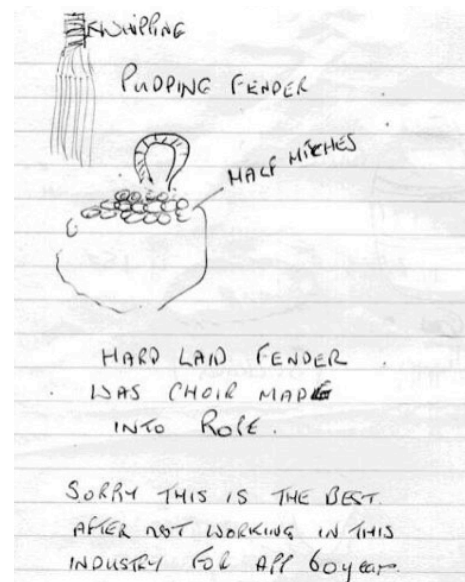 WHIPPING
PUDDING FENDER
HALF HITCHES
HARD LAID FENDER.
WAS CHOIR MADE
INTO ROPE.
SORRY THIS IS THE BEST.
AFTER NOT WORKING IN THIS
INDUSTRY FOR APP 60 years.